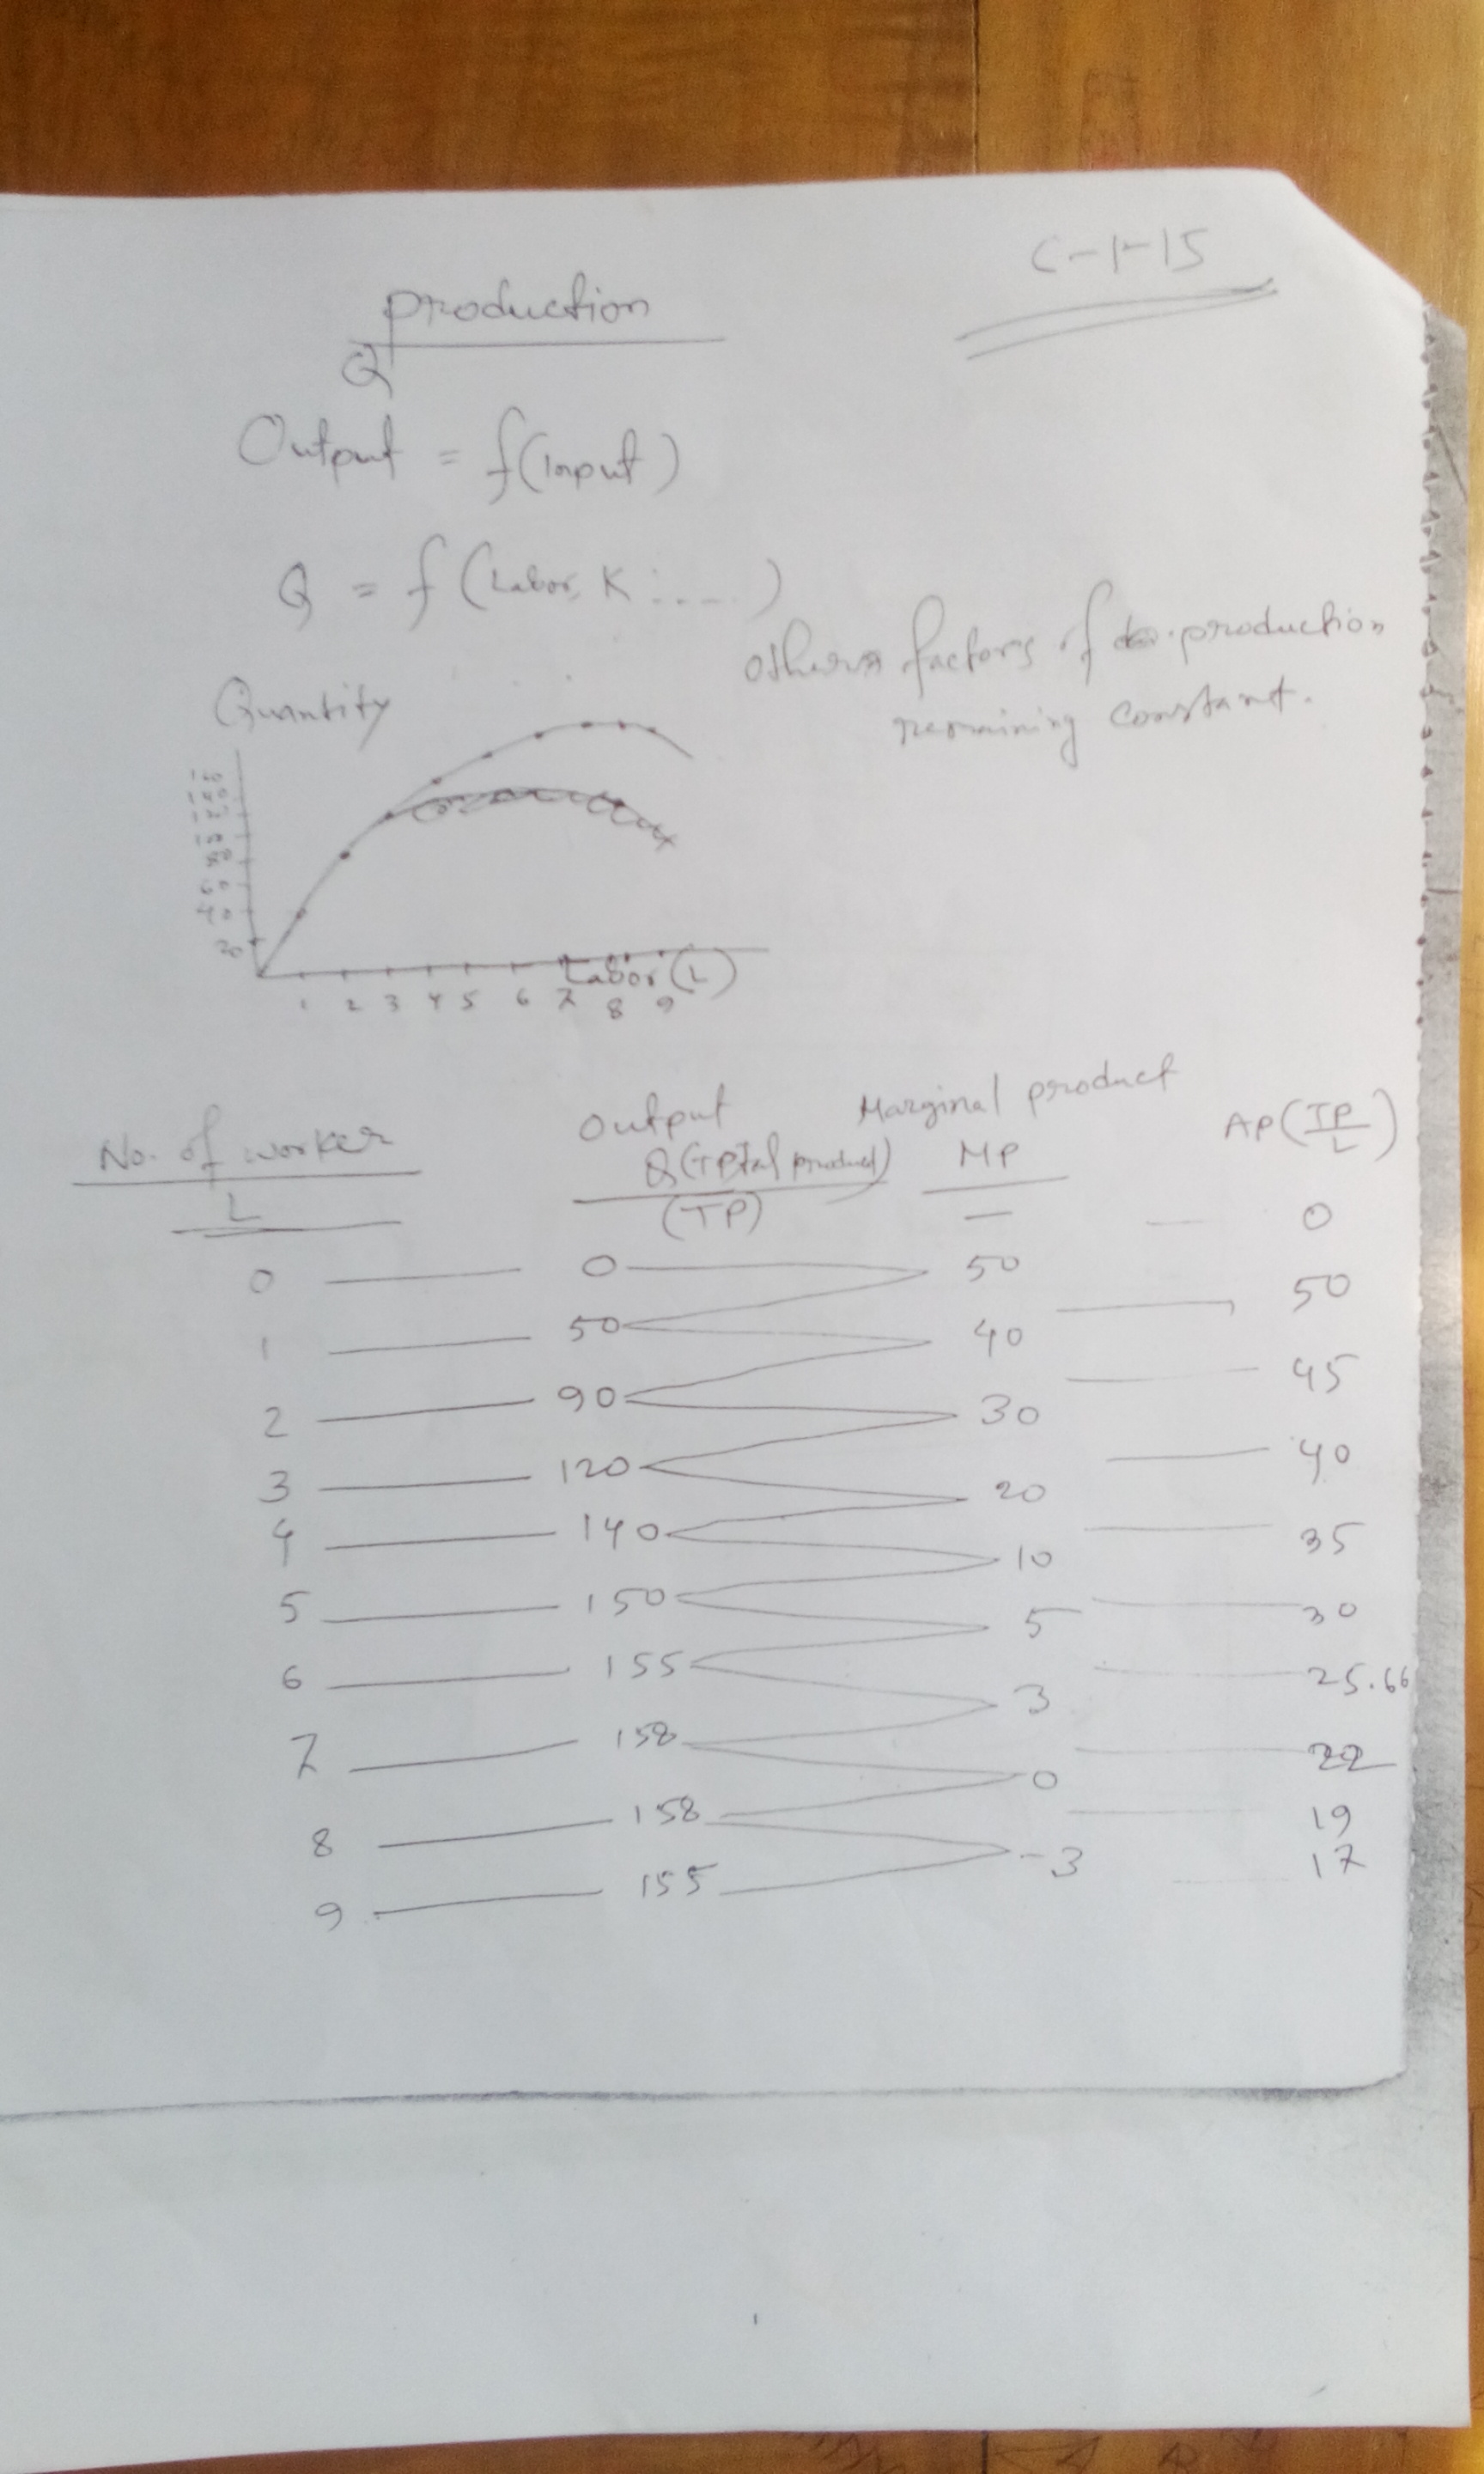 C-1-15
production
Q
Output = f(Input)
Q = f(Labor, K :....)
others factors of production
remaining constant.
Quantity
20
Labor (L)
1 2 3 4 5 6 7 8 9
No. of worker
L
Output
Q(Total product)
(TP)
Marginal product
MP
AP(TP/L)
— — 0
0 — 0 50
1 — 50 40 — 50
2 — 90 30 — 45
3 — 120 20 — 40
4 — 140 10 — 35
5 — 150 5 — 30
6 — 155 3 — 25.66
7 — 158 0 — 22
8 — 158 -3 — 19
9 — 155 — 17